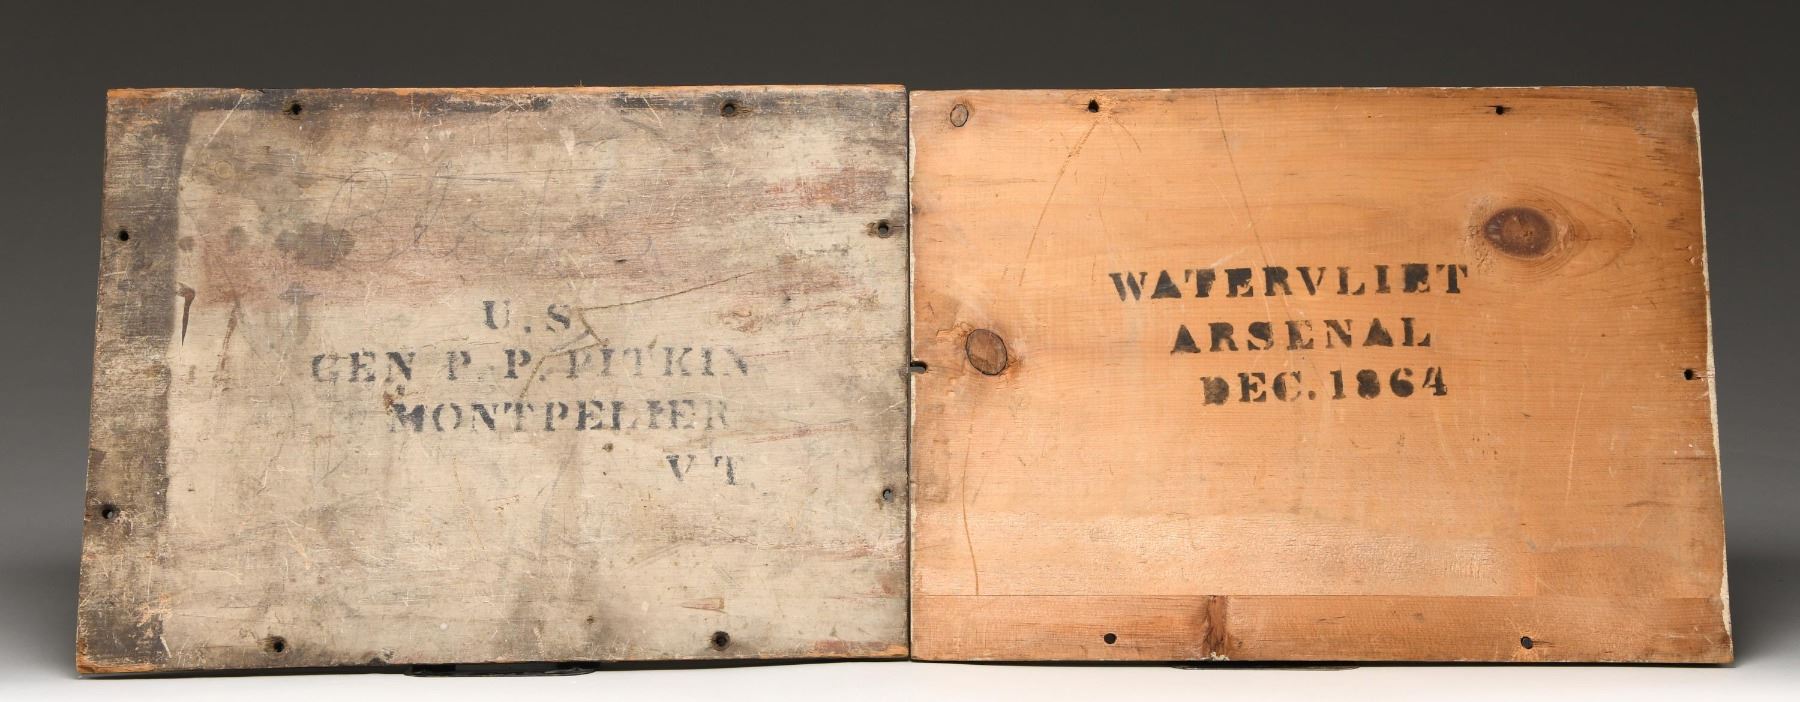 U.S.
GEN P.P. PITKIN
MONTPELIER
VT.
WATERVLIET
ARSENAL
DEC. 1864